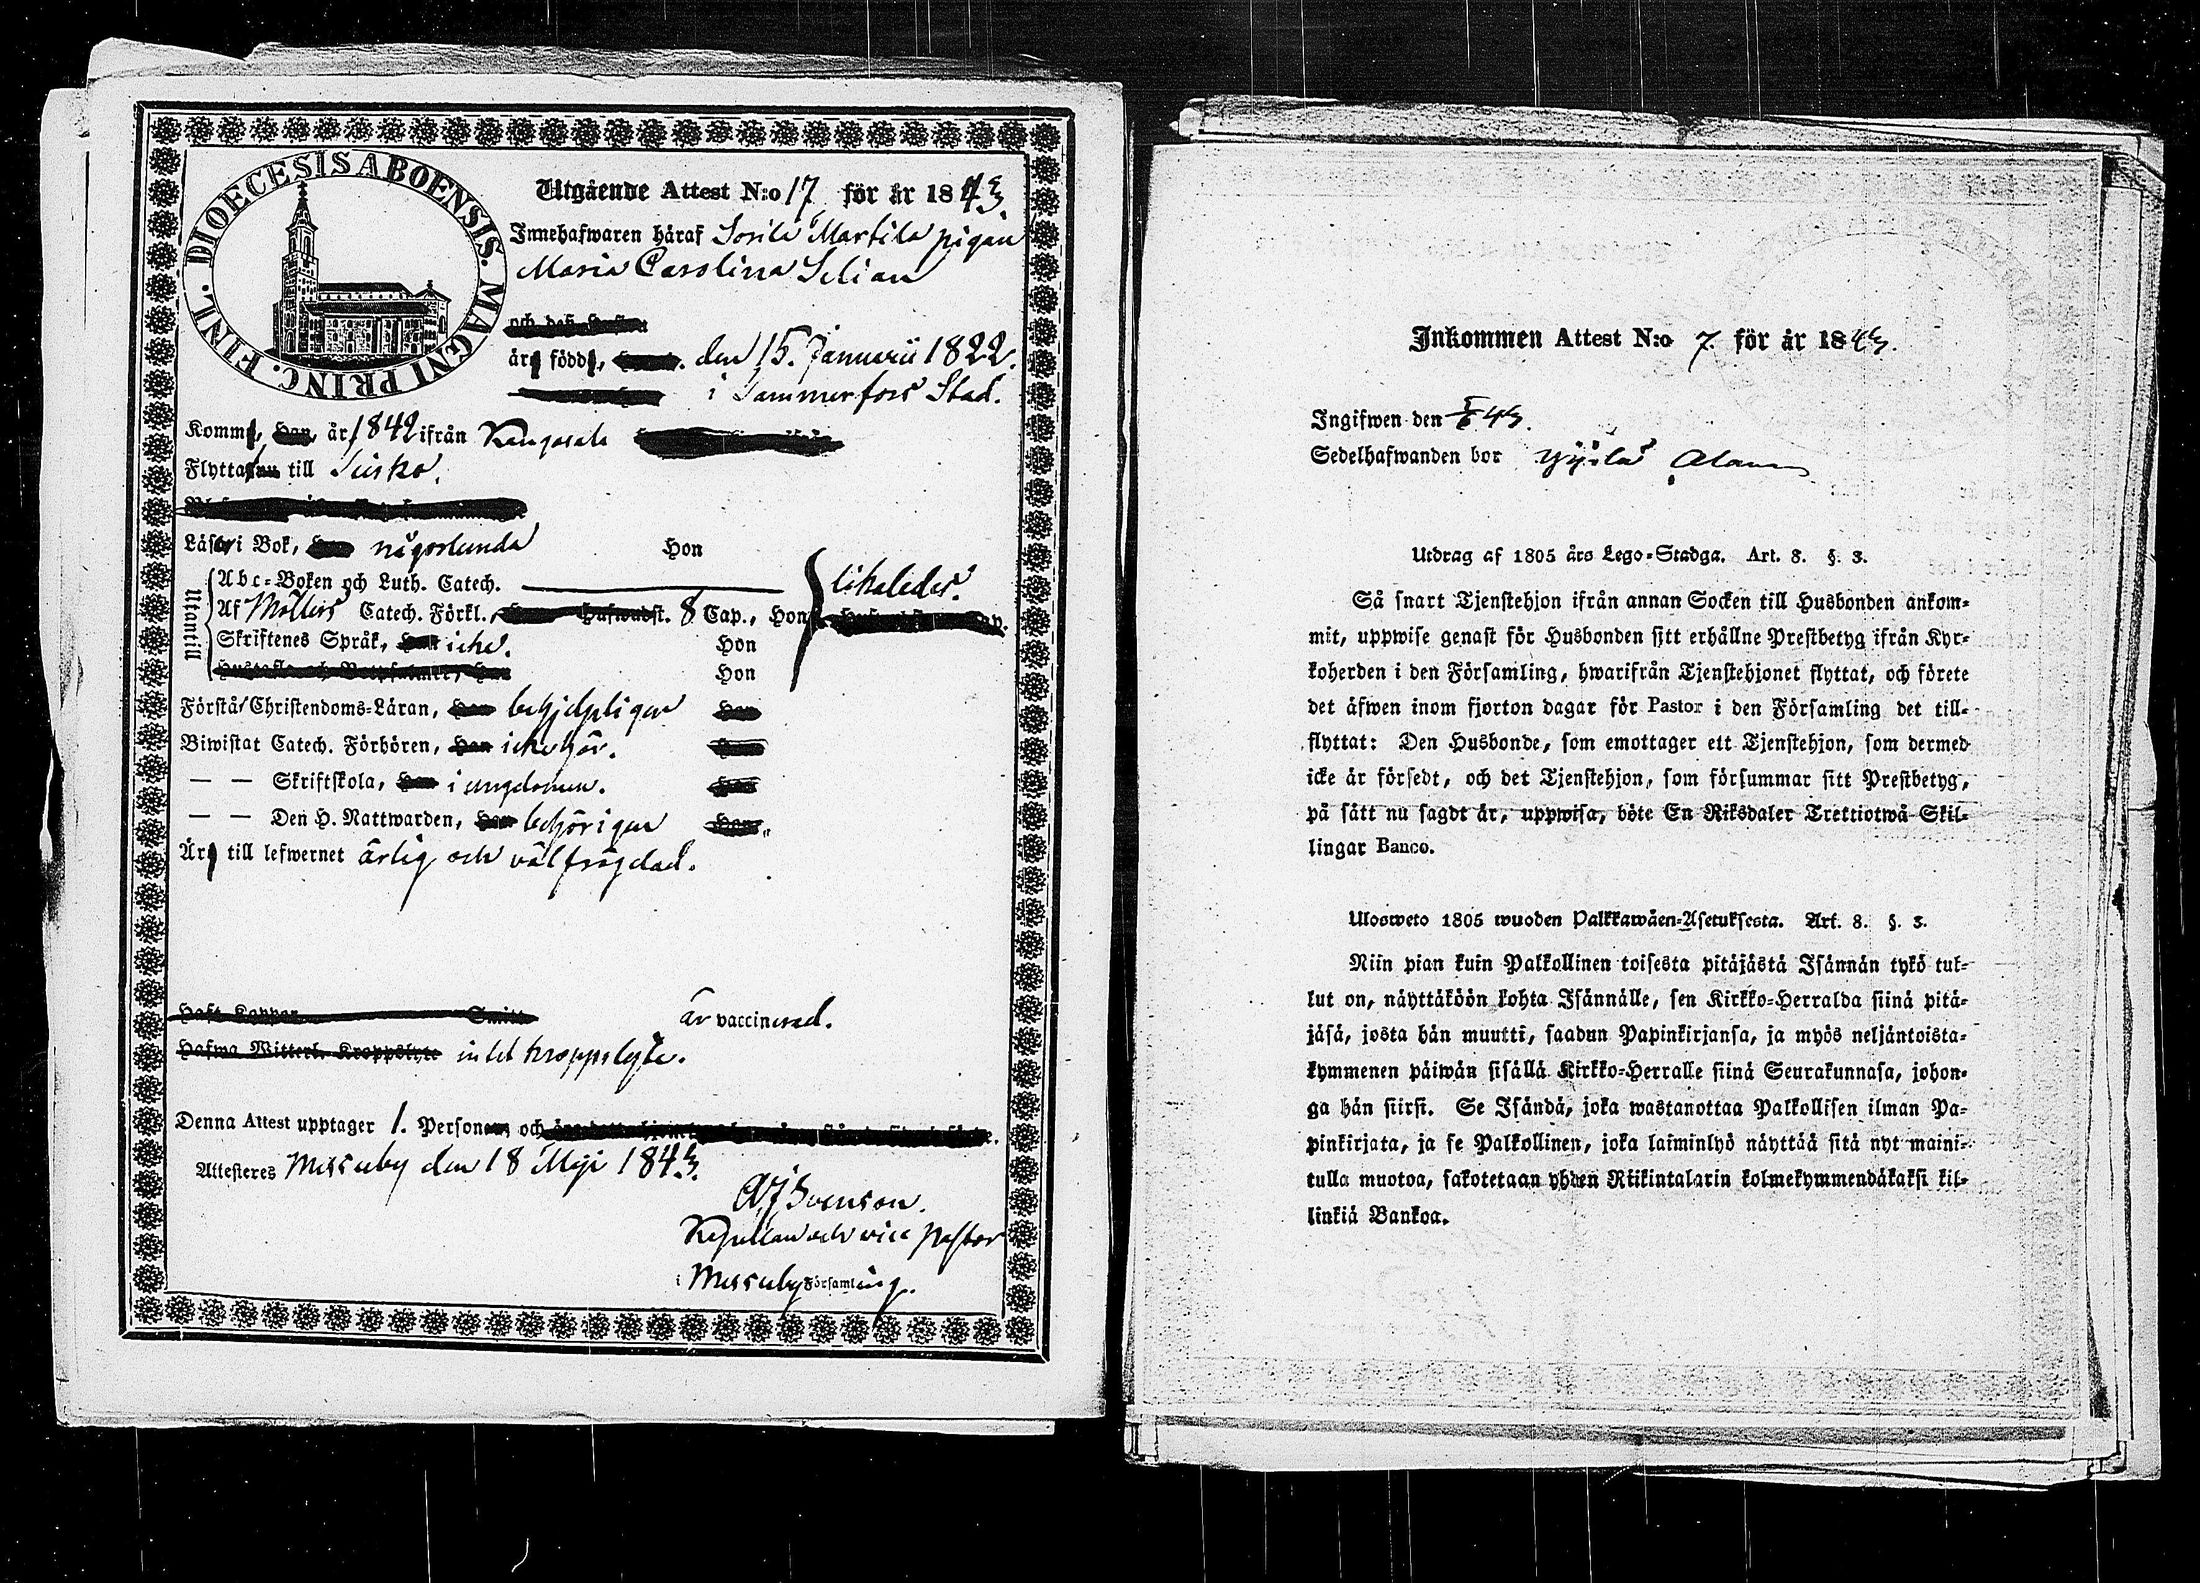 DIOECESIS ABOENSIS. MAGNI PRINC. FINL.
Utgående Attest N:o 17 för år 1843.
Innehafwaren häraf Sorila Martila pigan
Maria Carolina Selian
är född, den 15. Januarii 1822.
i Tammerfors Stad.
Komm, år 1842 ifrån Kangasala
Flytta till
Läser i Bok, någorlunda Hon
Utantill
Abc-Boken och Luth. Catech.
Af Möllers Catech. Förkl., Hufwudst. 8 Cap., Hon likaledes.
Skriftenes Språk, icke. Hon
Hustafla och Botpsalmer, Hon
Förstå Christendoms-Läran, behjelpligen
Biwistat Catech. Förhören, icke här.
— — Skriftskola, i ungdomen.
— — Den H. Nattwarden, behörigen
Är till lefwernet ärlig och välfrägdad.
Haft Koppor Smitt är vaccinerad.
Hafwa Witterl. Kroppslyte intet kroppslyte.
Denna Attest upptager 1. Person och
Attesteres Messuby den 18 Maji 1843.
AJ Svenson.
Kapellan och vice pastor
i Messuby Församling.
Inkommen Attest N:o 7. för år 1843.
Ingifwen den 43.
Sedelhafwanden bor
Utdrag af 1805 års Lego-Stadga. Art. 8. §. 3.
Så snart Tjenstehjon ifrån annan Socken till Husbonden ankom-
mit, uppwise genast för Husbonden sitt erhållne Prestbetyg ifrån Kyr-
koherden i den Församling, hwarifrån Tjenstehjonet flyttat, och förete
det äfwen inom fjorton dagar för Pastor i den Församling det till-
flyttat: Den Husbonde, som emottager ett Tjenstehjon, som dermed
icke är försedt, och det Tjenstehjon, som försummar sitt Prestbetyg,
på sätt nu sagdt är, uppwisa, böte En Riksdaler Trettiotwå Skil-
lingar Banco.
Ulosweto 1805 wuoden Palkkawäen-Asetuksesta. Art. 8. §. 3.
Niin pian kuin Palkollinen toisesta pitäjästä Isännän tykö tul-
lut on, näyttäköön kohta Isännälle, sen Kirkko-Herralda siinä pitä-
jäsä, josta hän muutti, saadun Papinkirjansa, ja myös neljäntoista-
kymmenen päiwän sisällä Kirkko-Herralle siinä Seurakunnasa, johon-
ga hän siirsi. Se Isändä, joka wastanottaa Palkollisen ilman Pa-
pinkirjata, ja se Palkollinen, joka laiminlyö näyttää sitä nyt maini-
tulla muotoa, sakotetaan yhden Riikintalarin kolmekymmendäkaksi kil-
linkiä Bankoa.